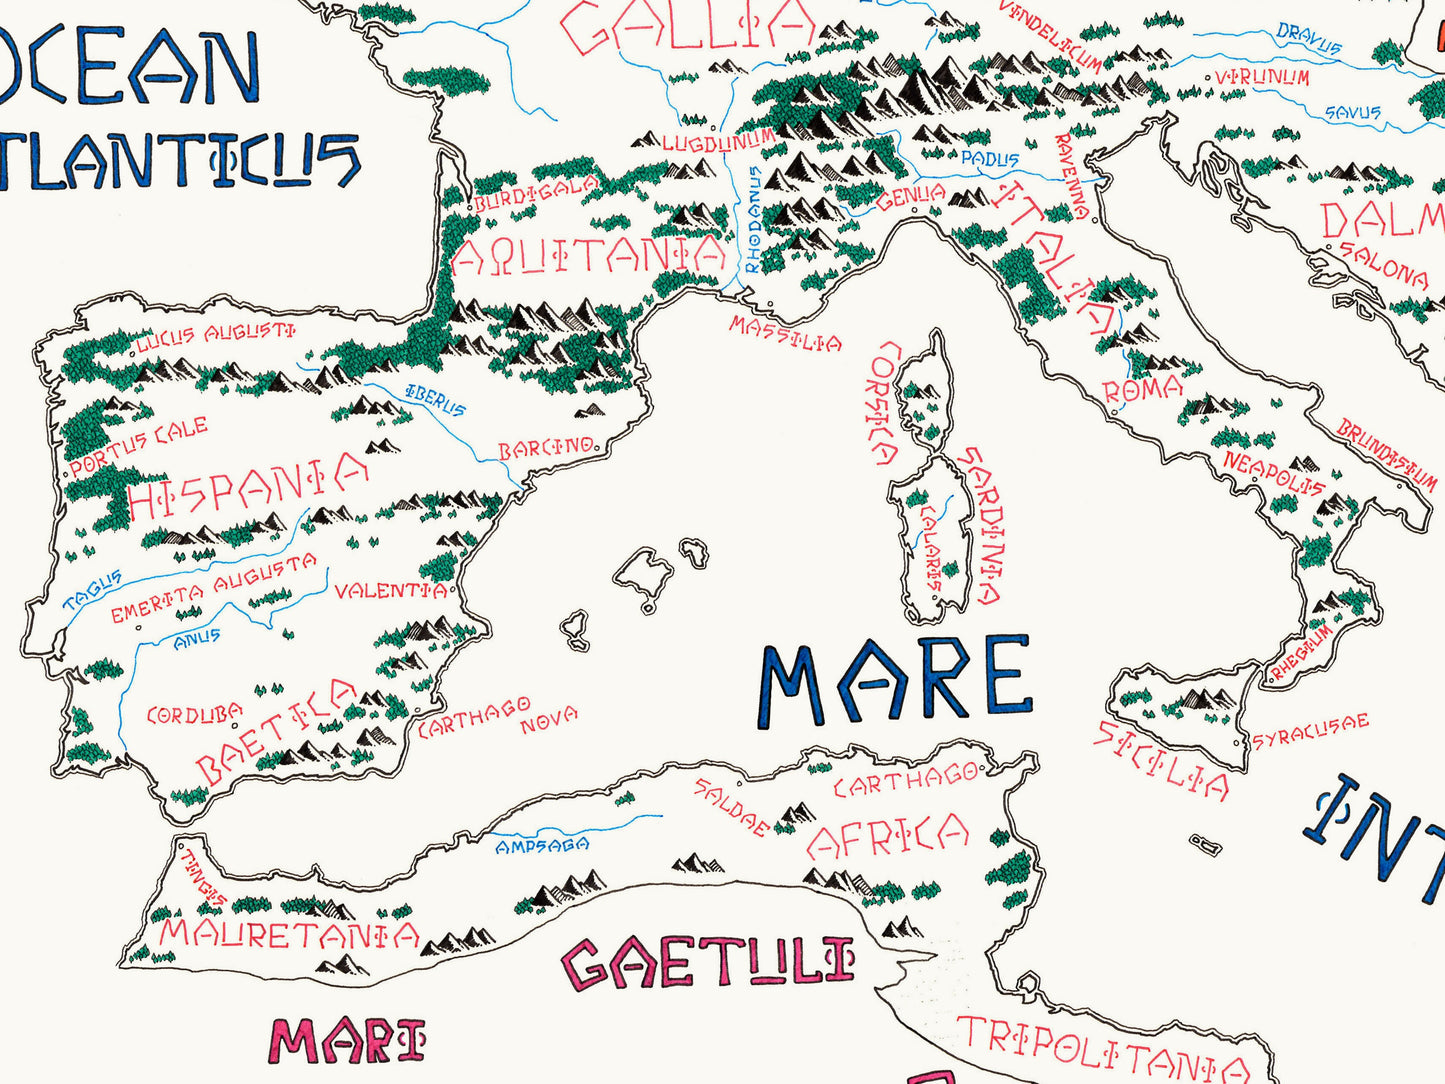 OCEAN
ATLANTICUS
GALLIA
VINDELICUM
DRAVUS
VIRUNUM
SAVUS
LUGDUNUM
RAVENNA
PADUS
BURDIGALA
RHODANUS
GENUA
ITALIA
DALM
SALONA
AQUITANIA
MASSILIA
LUCUS AUGUSTI
CORSICA
IBERUS
ROMA
PORTUS CALE
BARCINO
BRUNDISIUM
NEAPOLIS
HISPANIA
SARDINIA
CALARIS
TAGUS
EMERITA AUGUSTA
VALENTIA
ANUS
RHEGIUM
MARE
CORDUBA
BAETICA
CARTHAGO
NOVA
SYRACUSAE
SICILIA
INT
SALDAE
CARTHAGO
AMPSAGA
AFRICA
TINGIS
MAURETANIA
GAETULI
MARI
TRIPOLITANIA